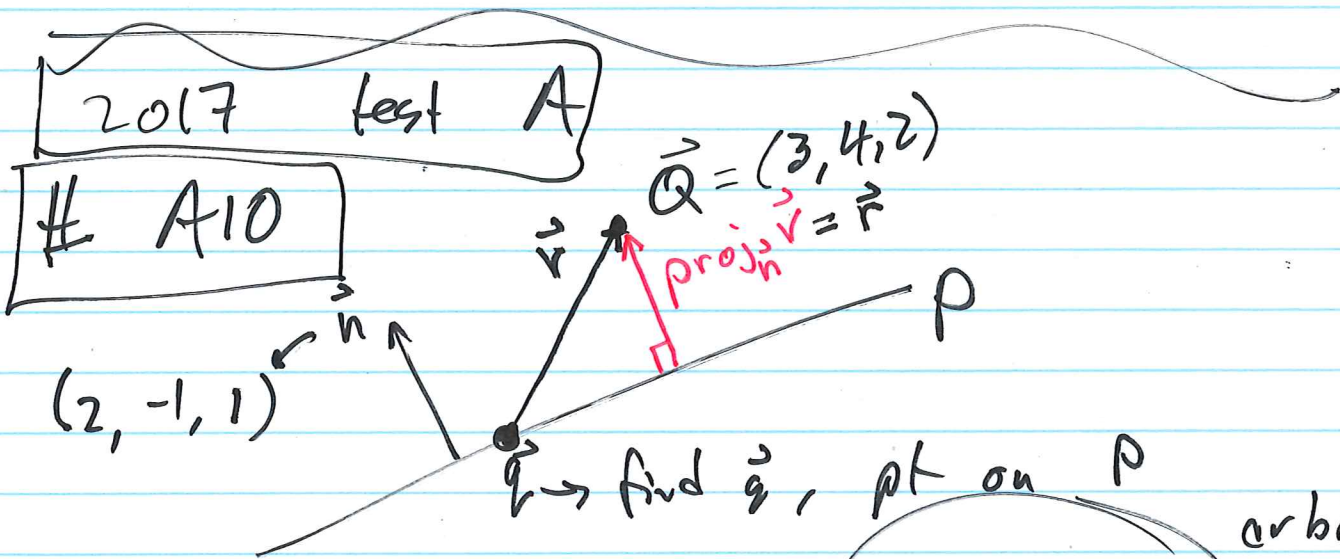 2017 test A
# A10
Q⃗ = (3, 4, 2)
v⃗
proj_n⃗ v⃗ = r⃗
P
n⃗
(2, -1, 1)
q⃗ → find q⃗, pt on P